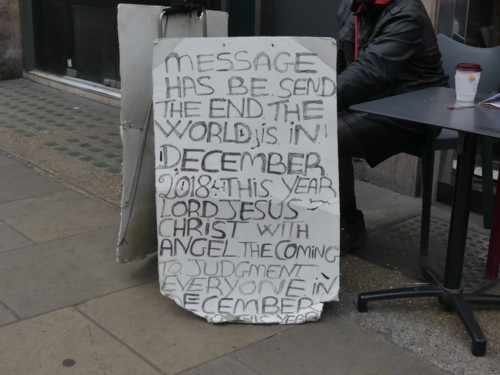 MESSAGE
HAS BE SEND
THE END THE
WORLD is IN
DECEMBER
2018. THIS YEAR
LORD JESUS
CHRIST WITH
ANGEL THE COMING
TO JUDGMENT
EVERYONE IN
DECEMBER
YEAR